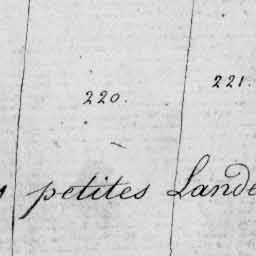 220.
221.
petites Lande